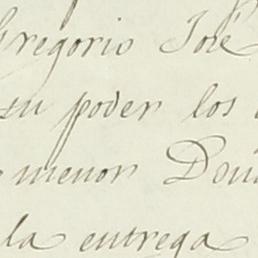 Gregorio José
su poder los
menor Doña
la entrega